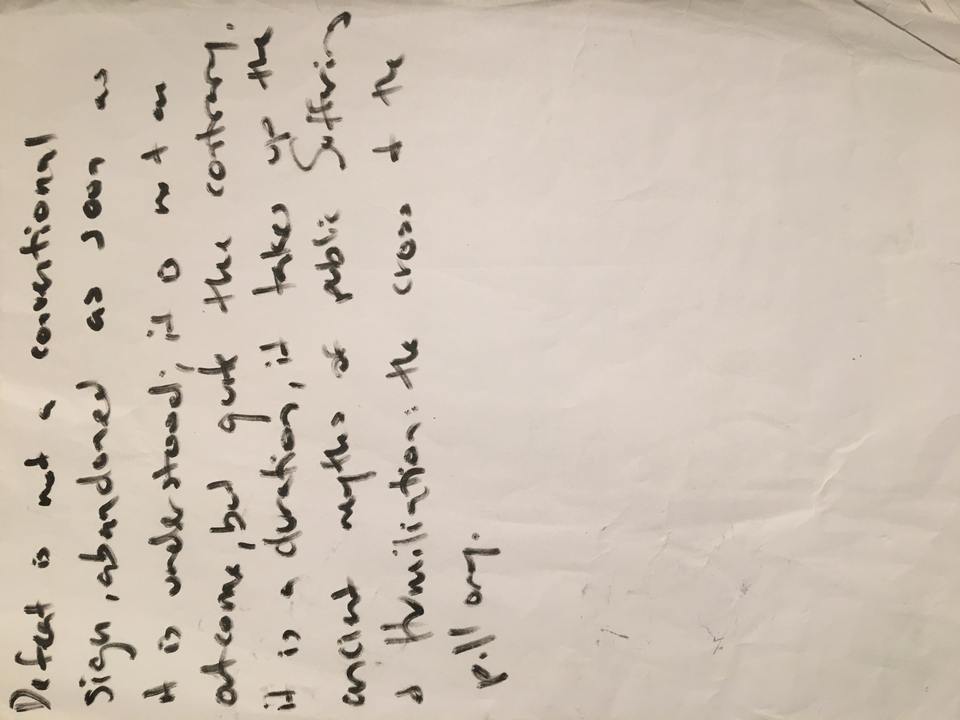 Defeat is not a conventional
sign, abandoned as soon as
it is understood; it is not an
outcome, but quite the contrary.
it is a duration, it takes up the
ancient myths of public Suffering
& Humiliation: the cross + the
pillory.